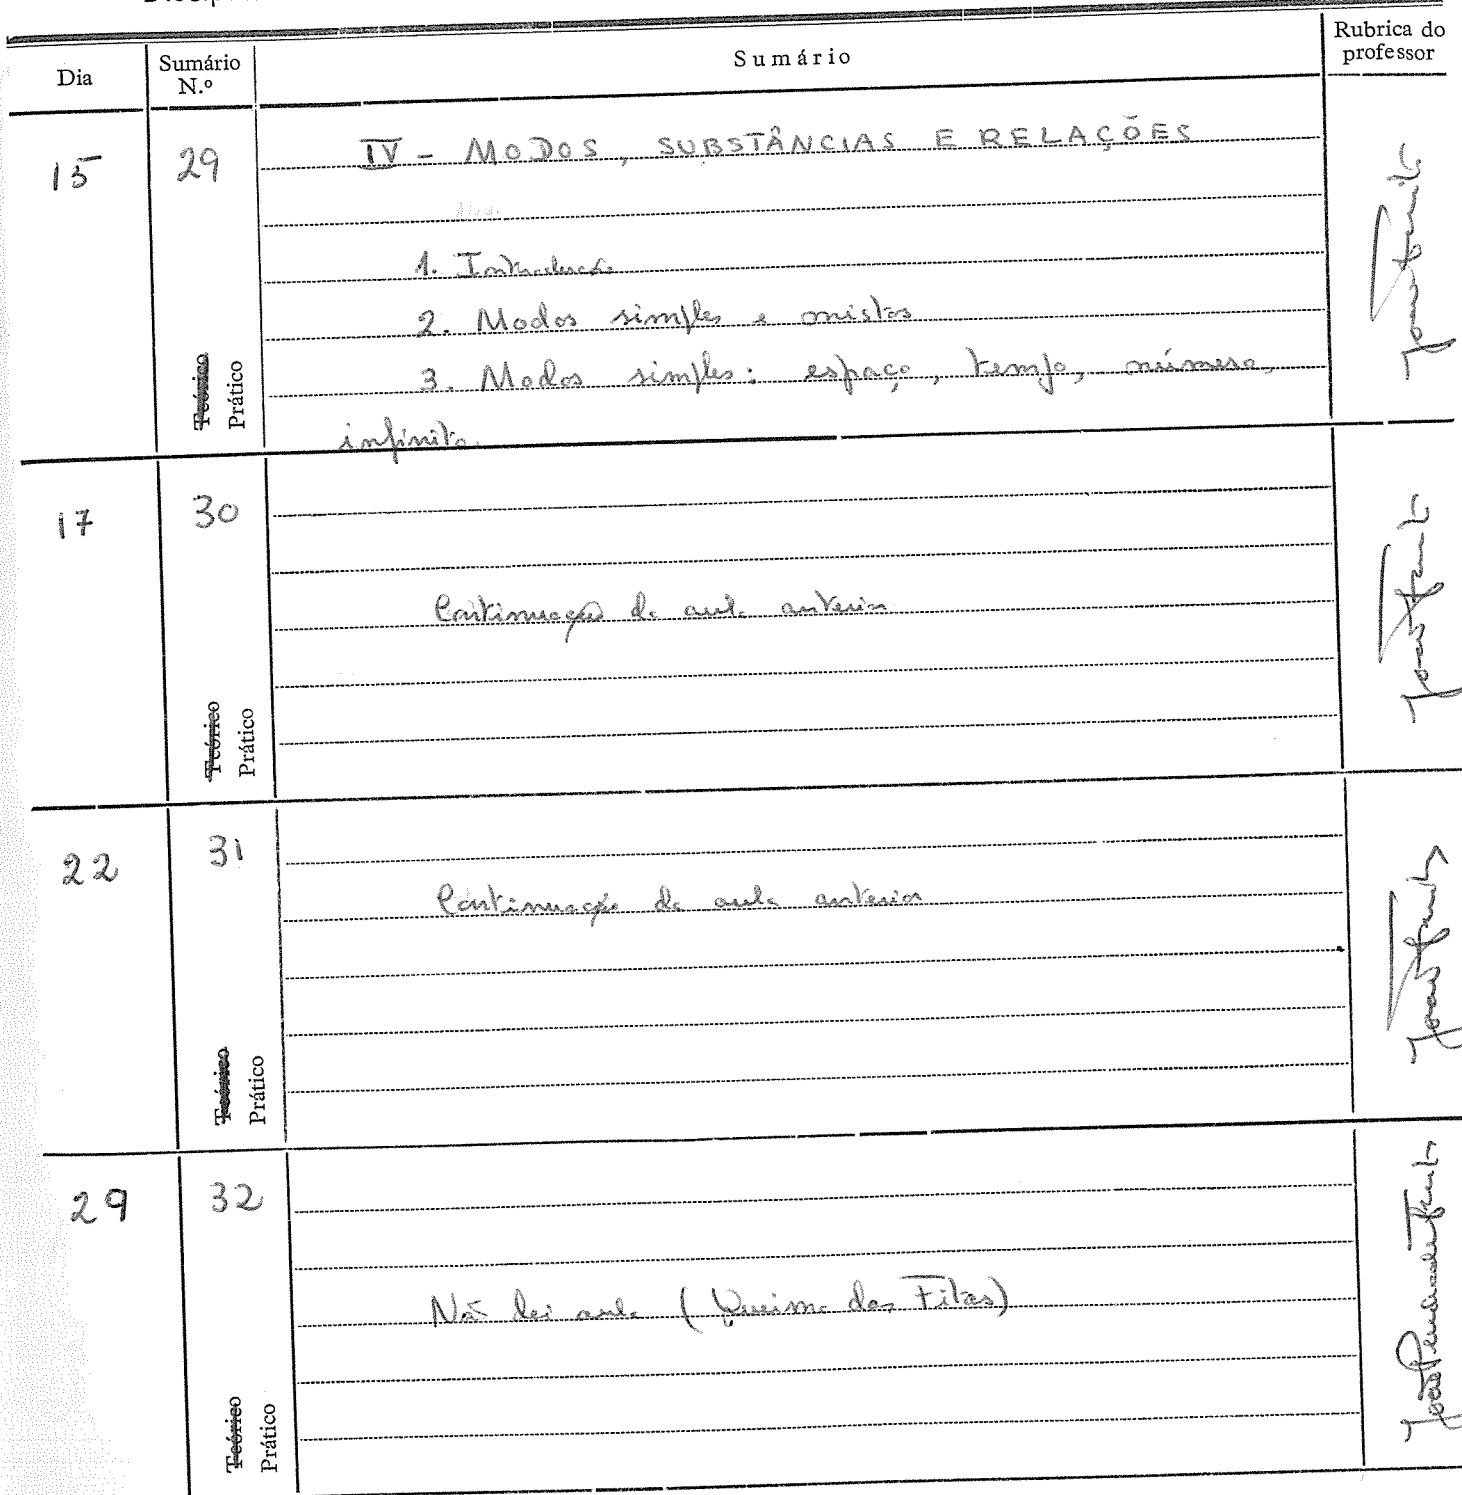 Dia
Sumário N.º
Sumário
Rubrica do professor
15
29
IV - MODOS, SUBSTÂNCIAS E RELAÇÕES
1. Introdução
2. Modos simples e mistos
3. Modos simples: espaço, tempo, número,
infinito.
Teórico
Prático
17
30
Continuação da aula anterior
Teórico
Prático
22
31
Continuação da aula anterior
Teórico
Prático
29
32
Não dei aula (Queima das Fitas)
Teórico
Prático